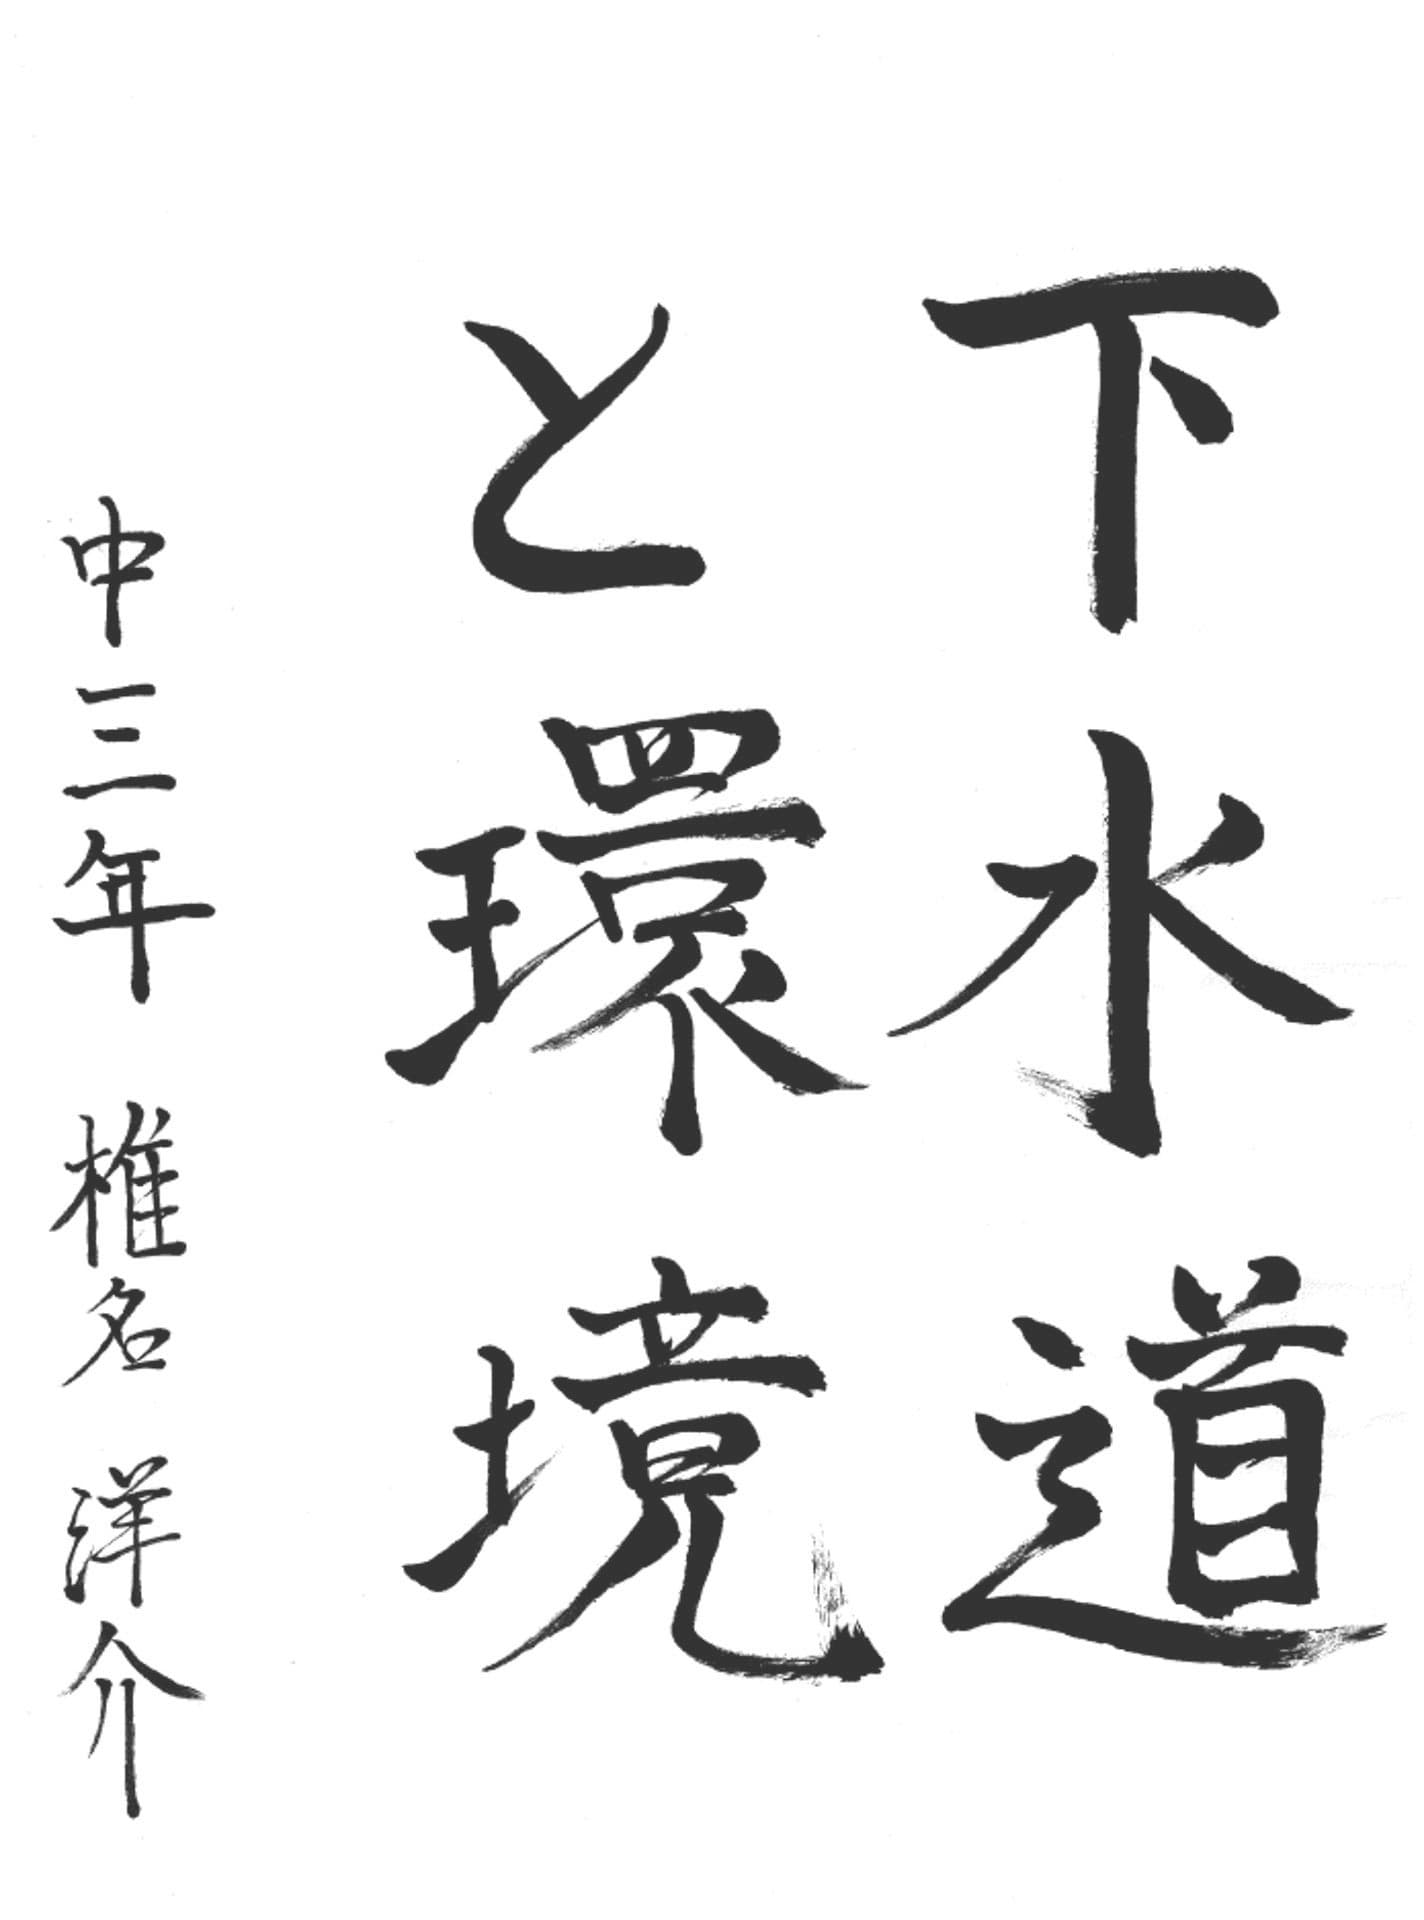 下水道
と環境
中三年 椎名 洋介